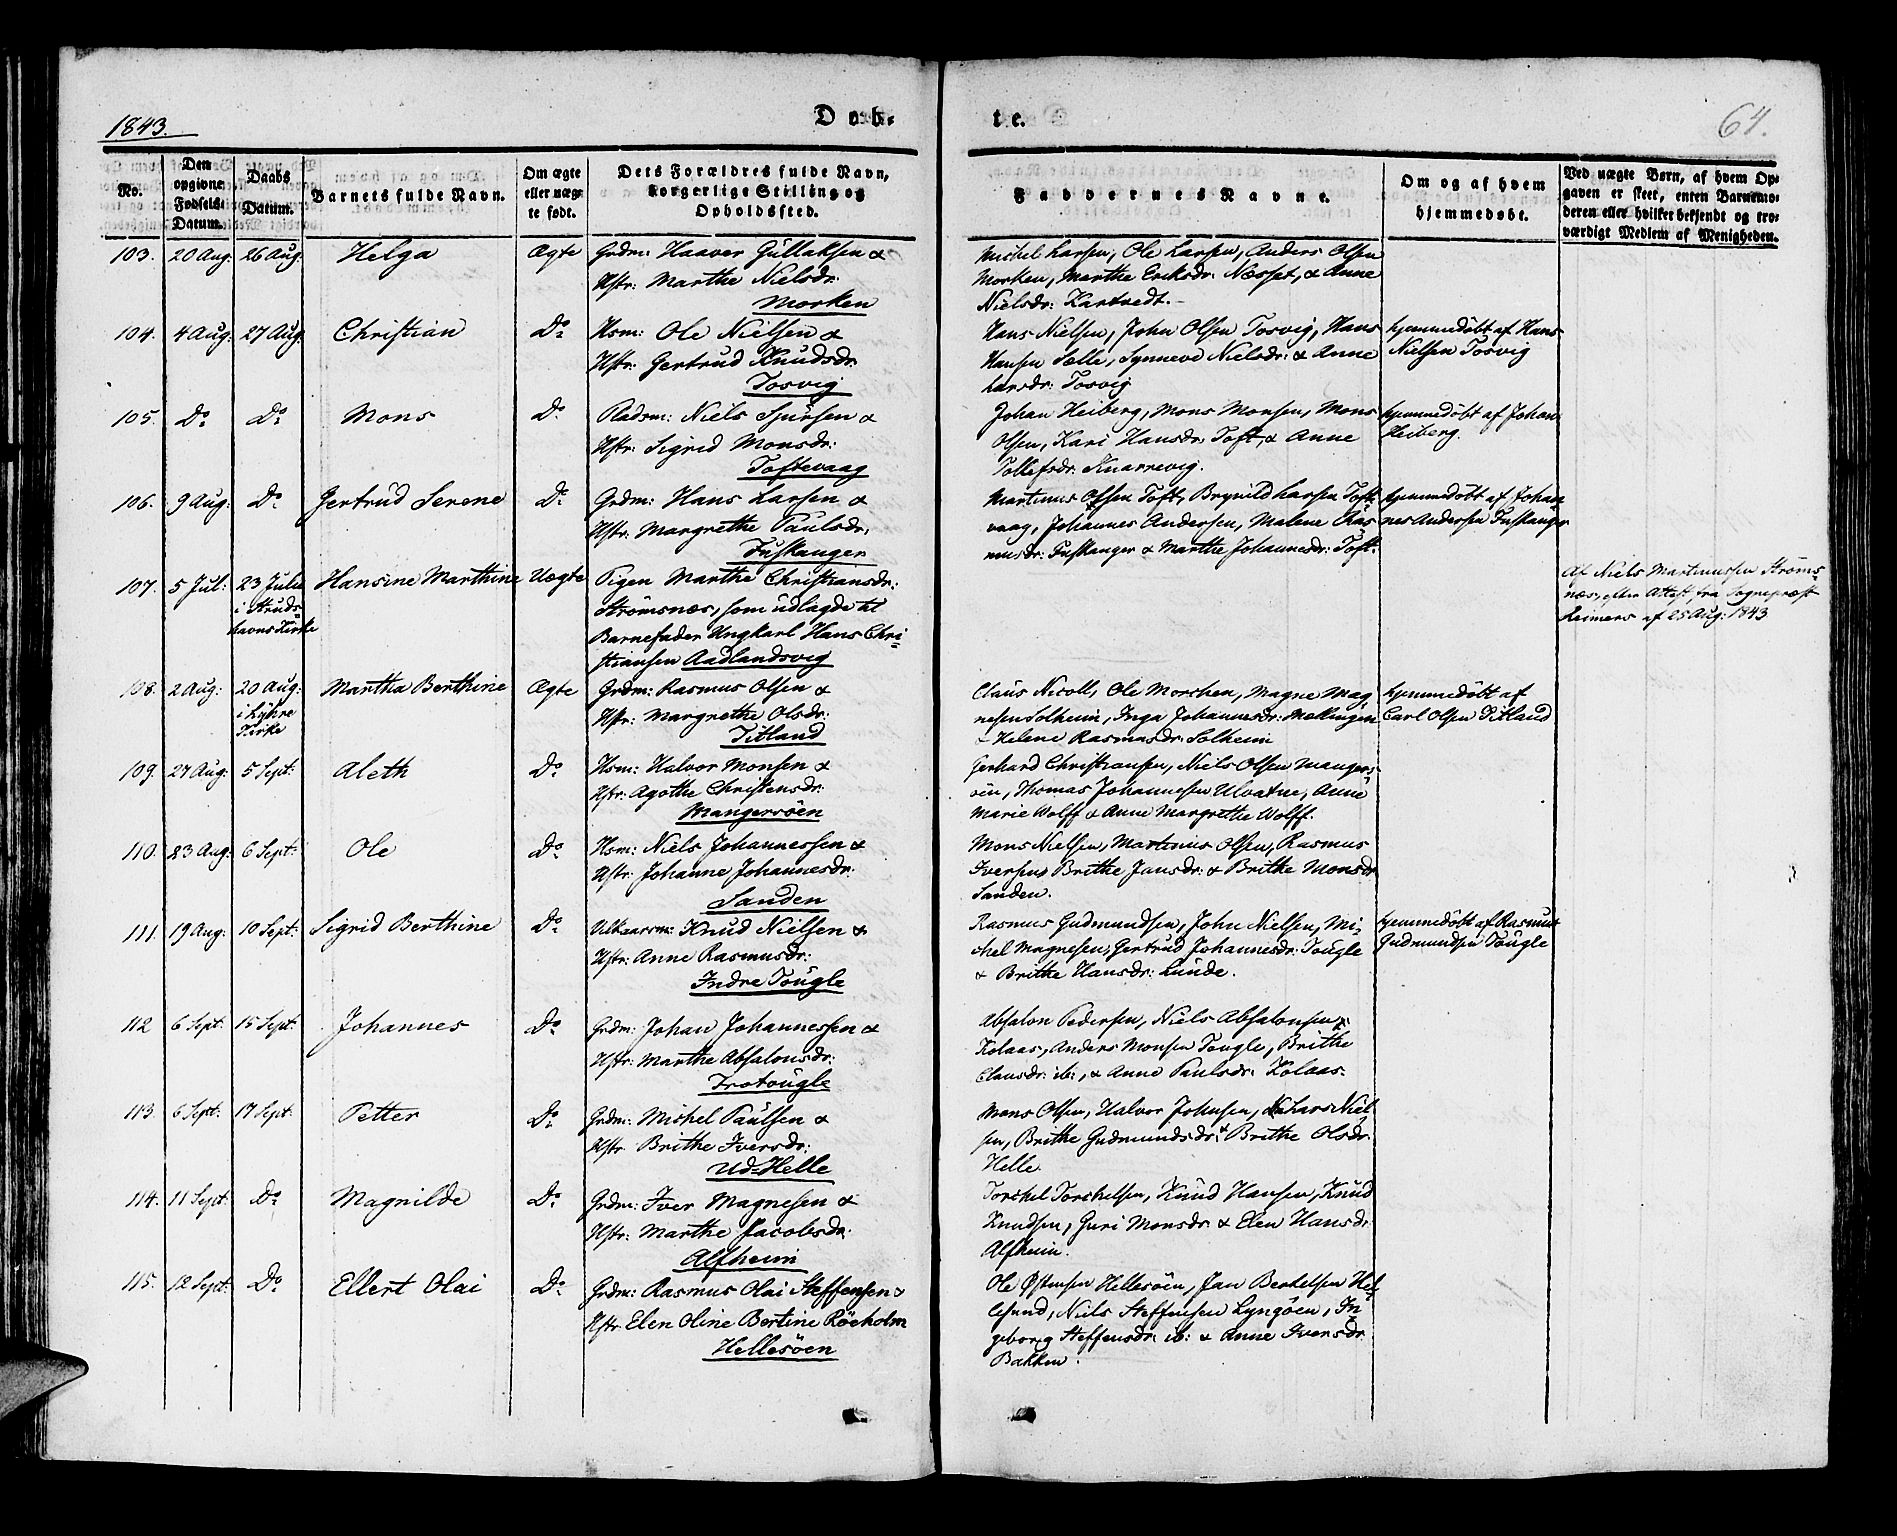 1843.
Døb-
te.
64.
No.
Den opgivne Fødsels Datum.
Daabs Datum.
Barnets fulde Navn.
Om ægte eller uægte født.
Dets Forældres fulde Navn, borgerlige Stilling og Opholdssted.
Faddernes Navne.
Om og af hvem hjemmedøbt.
Ved uægte Børn, af hvem Opgaven er skeet, enten Barnemoderen eller hvilket bekjendt og troværdigt Medlem af Menigheden.
103. 20 Aug: 26 Aug: Helga Ægte Grdm: Haaver Gullaksen &
Hstr: Marthe Nielsdr:
Morken
Michel Larsen, Ole Larsen, Anders Olsen
Morken, Marthe Eriksdr: Næsset, & Anne
Nielsdr: Kartvedt.-
104. 4 Aug: 27 Aug: Christian Do Hsm: Ole Nielsen &
Hstr: Gertrud Knudsdr:
Tosvig
Hans Nielsen, John Olsen Tosvig, Hans
Hansen Sælle, Synneve Nielsdr: & Anne
Larsdr: Tosvig
hjemmedöbt af Hans
Nielsen Tosvig
105. Do Do Mons Do Pladsm: Niels Sjursen &
Hstr: Sigrid Monsdr:
Toftevaag
Johan Heiberg, Mons Monsen, Mons
Olsen, Kari Hansdr: Toft, & Anne
Tollefsdr: Knarrevig.
hjemmedöbt af Johan
Heiberg.
106. 9 Aug: Do Gertrud Serene Do Grdm: Hans Larsen &
Hstr: Margrethe Paulsdr:
Fuskanger
Martinus Olsen Toft, Brynild Larsen Toft-
vaag, Johannes Andersen, Malene Ras-
musdr: Fuskanger & Marthe Johannesdr: Toft.
hjemmedöbt af Johan-
nes Andersen Fuskanger
107. 5 Jul: 23 Julii
i Struds-
havns Kirke
Hansine Marthine Uægte Pigen Marthe Christiansdr:
Strömsnæs, som udlagde til
Barnefader Ungkarl Hans Chri-
stiansen Aadlandsvig
Af Niels Martinussen Ströms-
næs, efter Attest fra Sognepræst
Reimers af 25 Aug: 1843
108. 2 Aug: 20 Aug:
i Lyhre
Kirke
Martha Berthine Ægte Grdm: Rasmus Olsen &
Hstr: Margrethe Olsdr:
Titland
Claus Nicoll, Ole Morchen, Magne Mag-
nesen Solheim, Inga Johannesdr: Mællingen
& Helene Rasmusdr: Solheim
hjemmedöbt af
Carl Olsen Titland
109. 27 Aug: 5 Sept: Aleth Do Hsm: Halvor Monsen &
Hstr: Agothe Christensdr:
Mangersöen
Gerhard Christiansen, Niels Olsen Mangers-
öen, Thomas Johannesen Ulvatne, Anne
Marie Wolff & Anne Margrethe Wolff.
110. 23 Aug: 6 Sept: Ole Do Hsm: Niels Johannessen &
Hstr: Johanne Johannesdr:
Sanden
Mons Nielsen, Martinus Olsen, Rasmus
Iversen, Brithe Jansdr: & Brithe Monsdr
Sanden.
111. 19 Aug: 10 Sept: Sigrid Berthine Do Vilkaarsm: Knud Nielsen &
Hstr: Anne Rasmusdr:
Indre Tougle
Rasmus Gudmundsen, John Nielsen, Mi-
chel Magnesen, Gertrud Johannesdr: Tougle
& Brithe Hansdr: Lunde.
hjemmedöbt af Rasmus
Gudmundsen Tougle
112 6 Sept: 15 Sept: Johannes Do Grdm: Johan Johannessen &
Hstr: Marthe Absalonsdr:
Trotougle
Absalon Pedersen, Niels Absalonsen
Kolaas, Anders Monsen Tougle, Brithe
Clausdr: ib:, & Anne Paulsdr: Kolaas.
113. 6 Sept: 17 Sept: Petter Do Grdm: Michel Paulsen &
Hstr Brithe Iversdr:
Ud-Helle
Mons Olsen, Halvor Johnsen, Lars Niel-
sen, Brithe Gudmundsdr: & Brithe Olsdr:
Helle.
114. 11 Sept: Do Magnilde Do Grdm: Iver Magnesen &
Hstr: Marthe Jacobsdr:
Alfheim
Torchel Torchelsen, Knud Hansen, Knud
Knudsen, Guri Monsdr & Elen Hansdr:
Alfheim.
115. 12 Sept: Do Ellert Olai Do Grdm: Rasmus Olai Steffensen &
Hstr Elen Oline Bertine Röeholm
Hellesöen
Ole Östensen Hellesöen, Jan Bertelsen Hel-
lesund, Niels Steffensen Lyngöen, In-
geborg Steffensdr: ib: & Anne Iversdr:
Bakken.